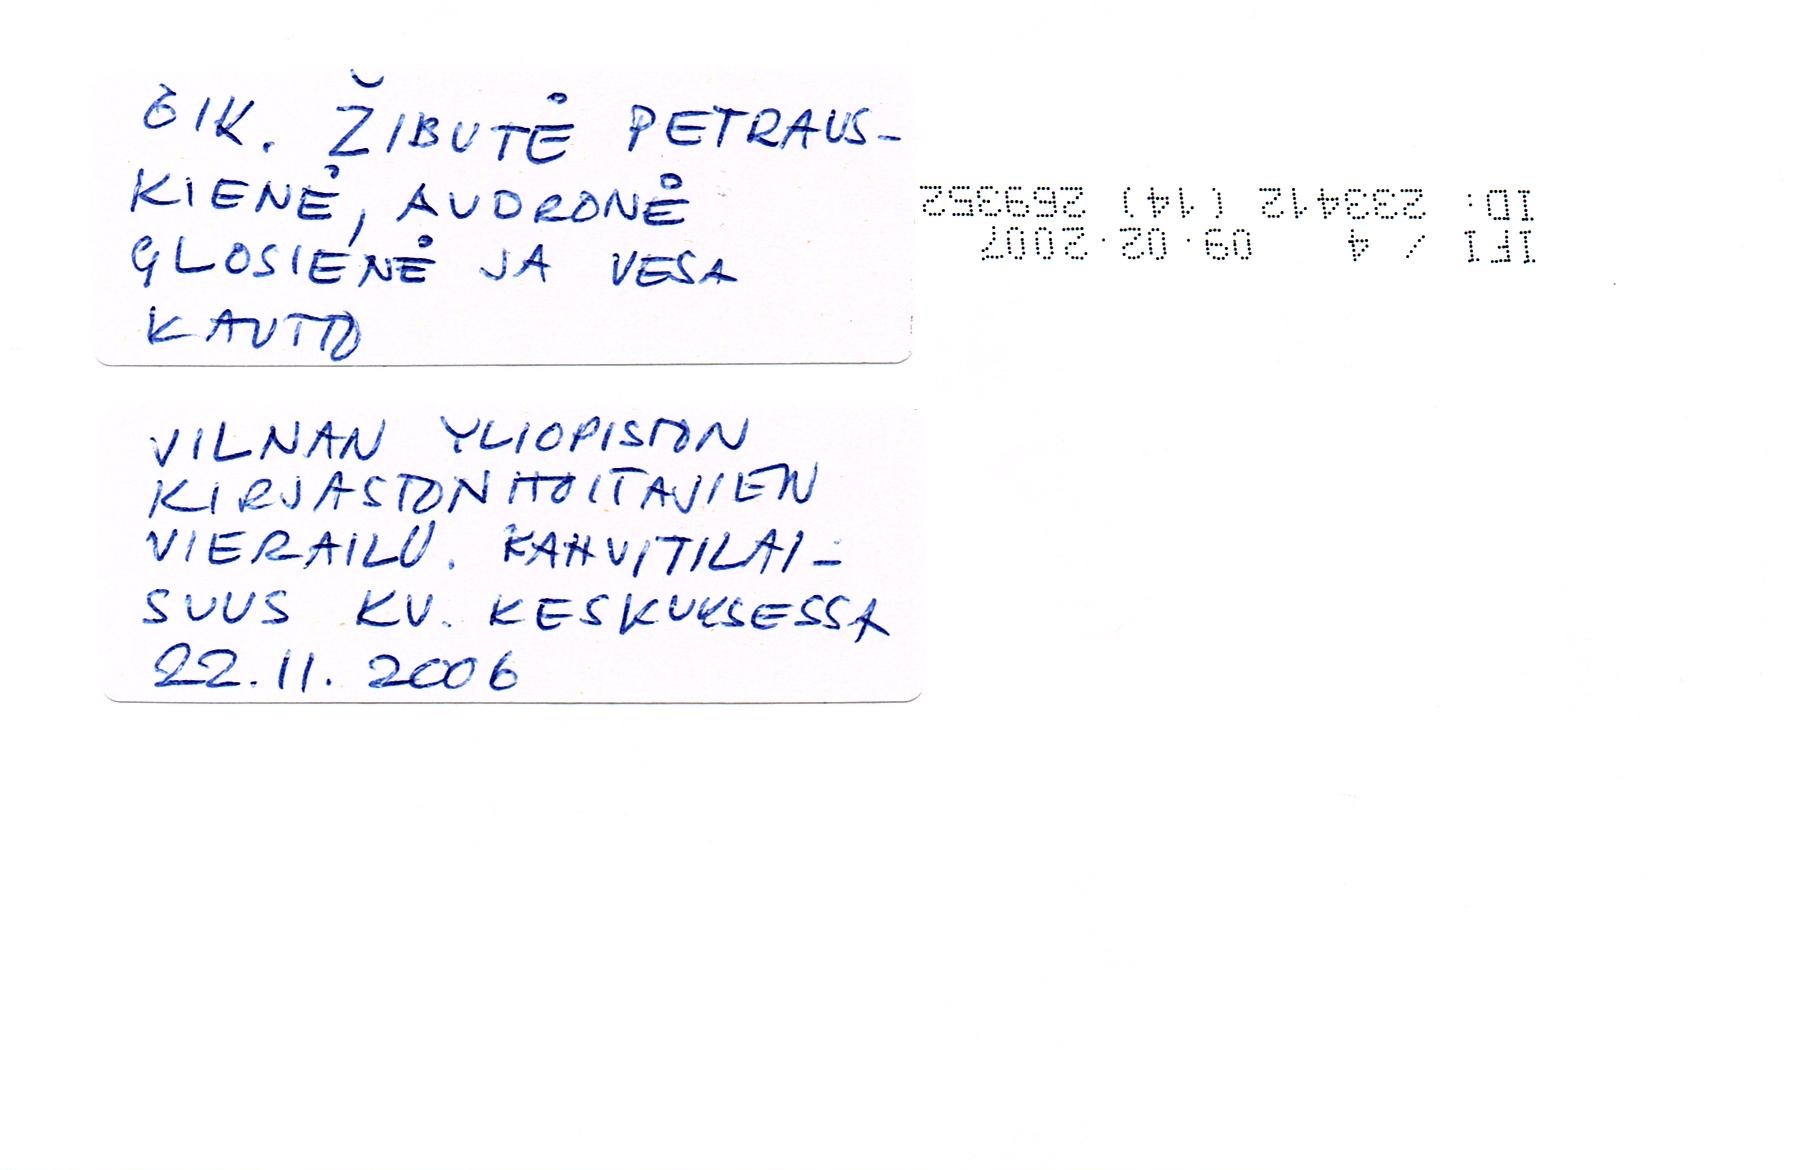 ÖIK. ŽIBUTĖ PETRAUS-
KIENĖ, AUDRONĖ
GLOSIENĖ JA VESA
KAUTTO
VILNAN YLIOPISTON
KIRJASTONHOITAJIEN
VIERAILU. KAHVITILAI-
SUUS KV. KESKUKSESSA
22.11.2006
ID: 233412 (14) 269352
IFI / 4 09.02.2007